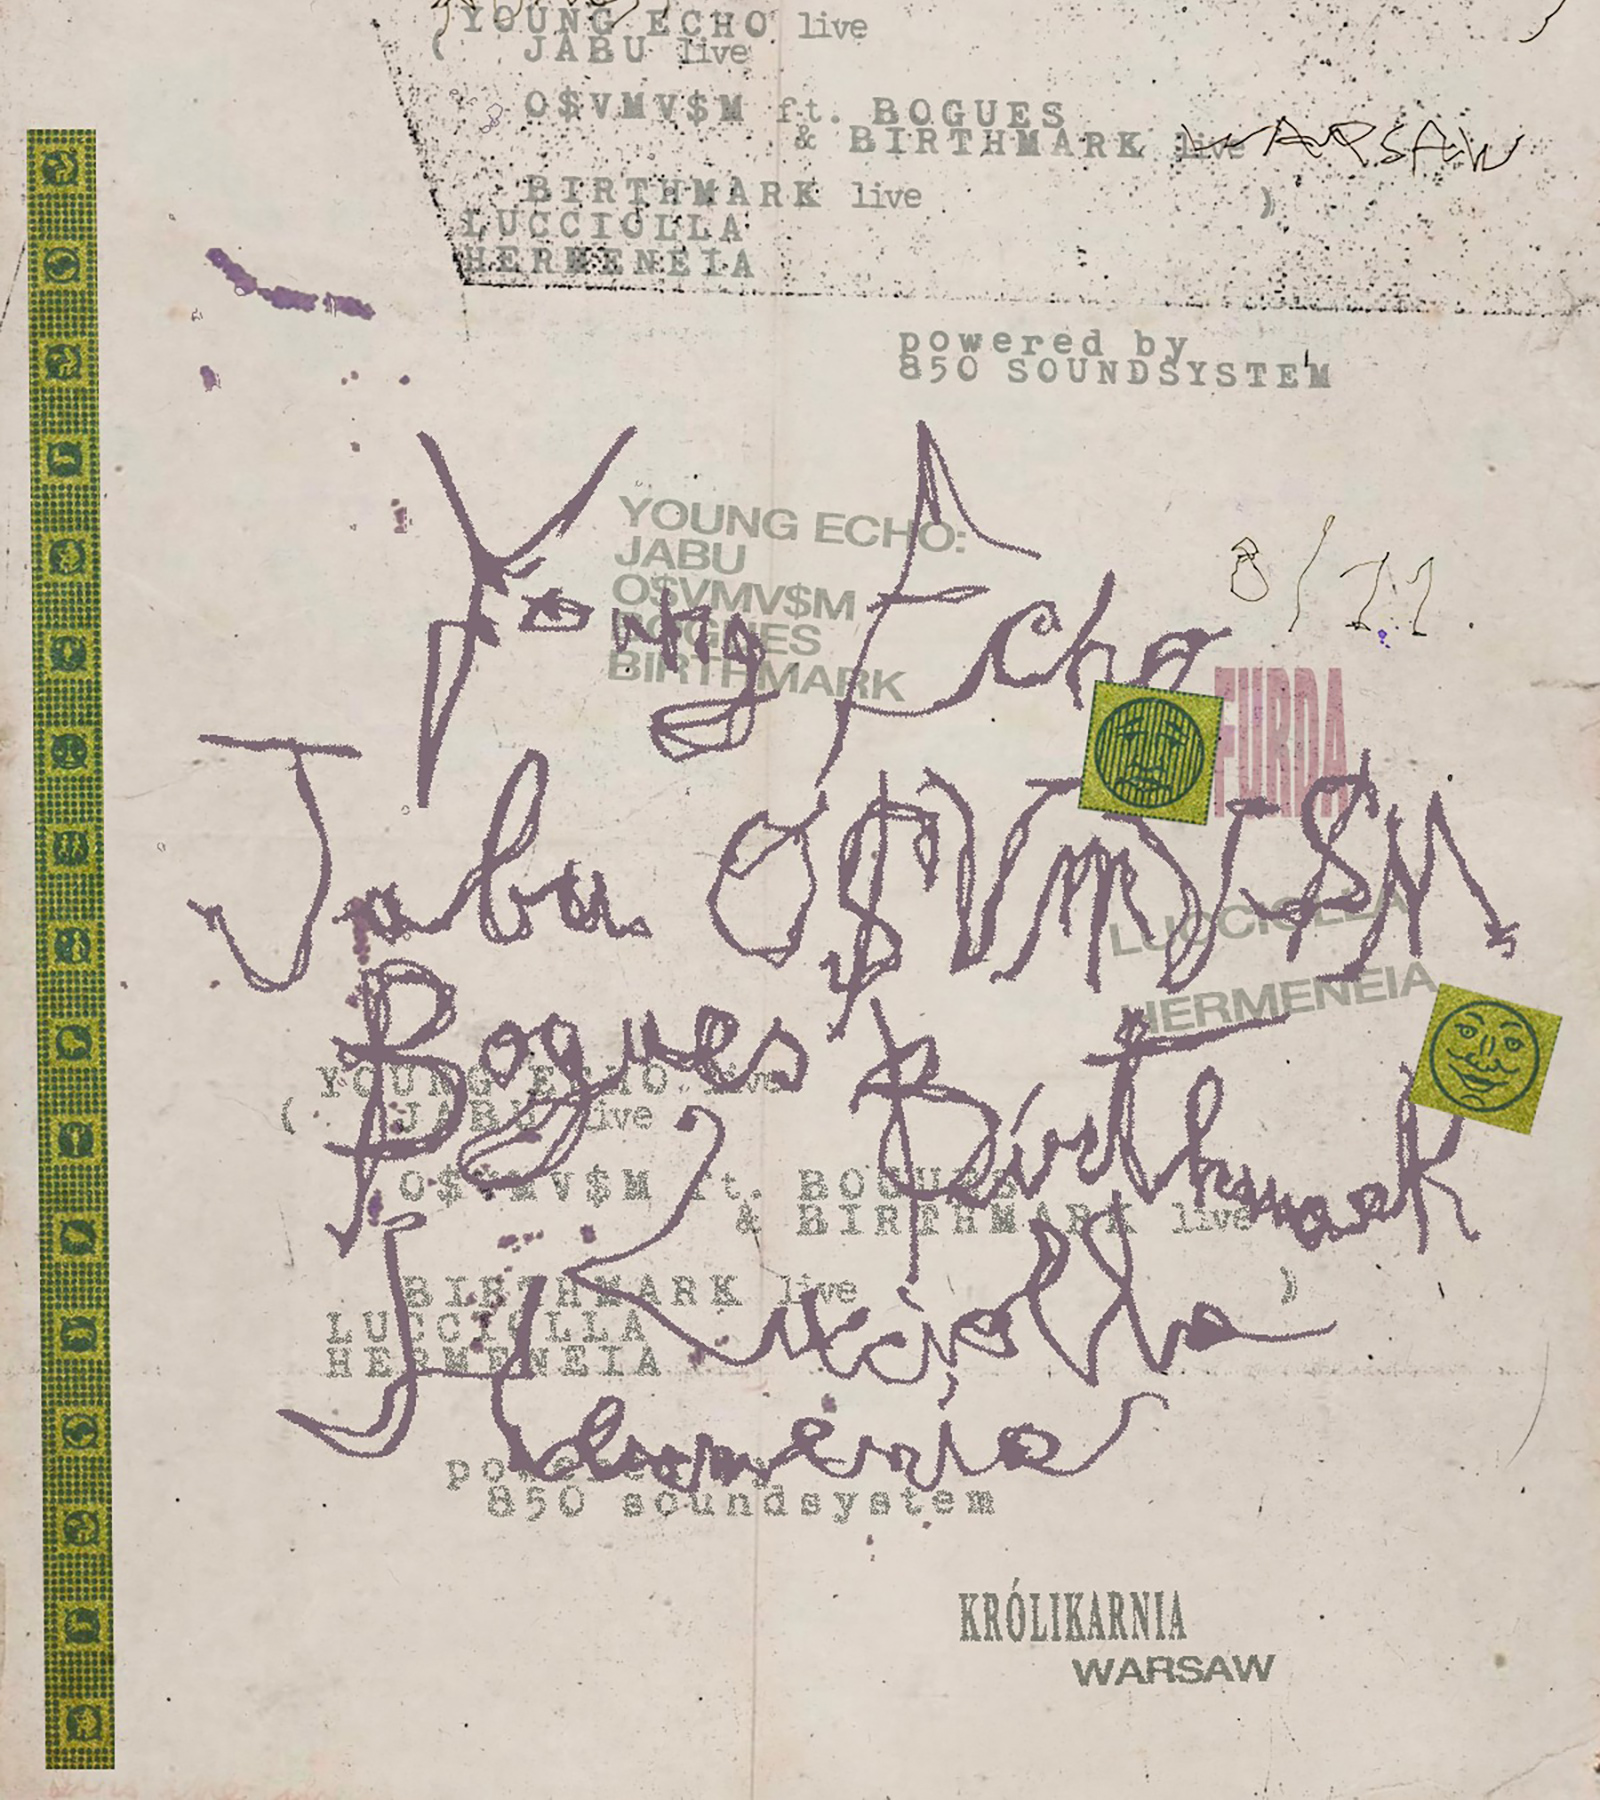 YOUNG ECHO live
( JABU live
O$VMV$M ft. BOGUES
& BIRTHMARK live
WARSAW
BIRTHMARK live )
LUCCIOLLA
HERMENEIA
powered by
850 SOUNDSYSTEM
YOUNG ECHO:
JABU
O$VMV$M
BOGUES
BIRTHMARK
8/11.
Young Echo
FURDA
Jabu O$VMV$M
LUCCIOLLA
HERMENEIA
Bogues Birthmark
YOUNG ECHO live
( JABU live
O$VMV$M ft. BOGUES
& BIRTHMARK live
BIRTHMARK live )
LUCCIOLLA
HERMENEIA
powered by
850 soundsystem
KRÓLIKARNIA
WARSAW